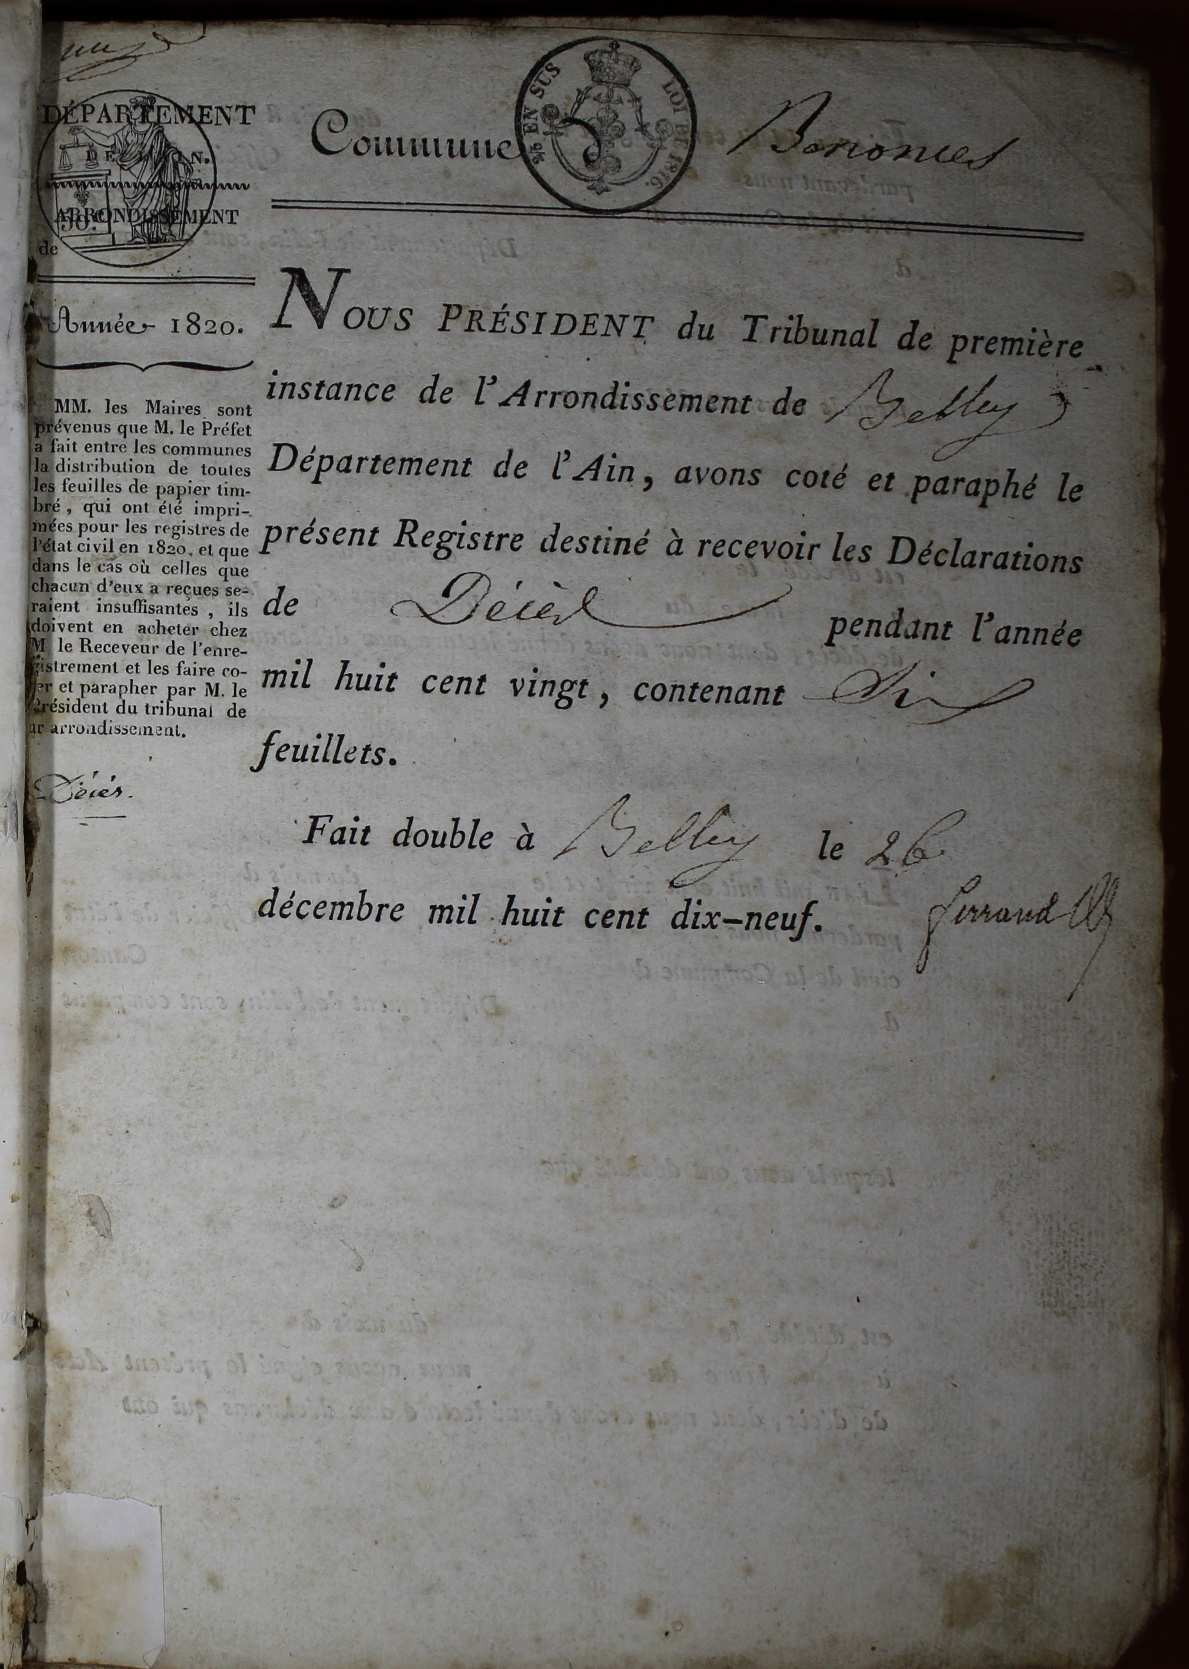 DÉPARTEMENT
DE L'AIN.
ARRONDISSEMENT
de
50 C.
Commune
% EN SUS
LOI DE 1816.
Benonces
Année 1820.
MM. les Maires sont
prévenus que M. le Préfet
a fait entre les communes
la distribution de toutes
les feuilles de papier tim-
bré, qui ont été impri-
mées pour les registres de
l'état civil en 1820, et que
dans le cas où celles que
chacun d'eux a reçues se-
raient insuffisantes, ils
doivent en acheter chez
M le Receveur de l'enre-
gistrement et les faire co-
ter et parapher par M. le
Président du tribunal de
arrondissement.
Décès.
NOUS PRÉSIDENT du Tribunal de première
instance de l'Arrondissement de Belley
Département de l'Ain, avons coté et paraphé le
présent Registre destiné à recevoir les Déclarations
de Décès pendant l'année
mil huit cent vingt, contenant Six
feuillets.
Fait double à Belley le 26
décembre mil huit cent dix-neuf.
Ferrand